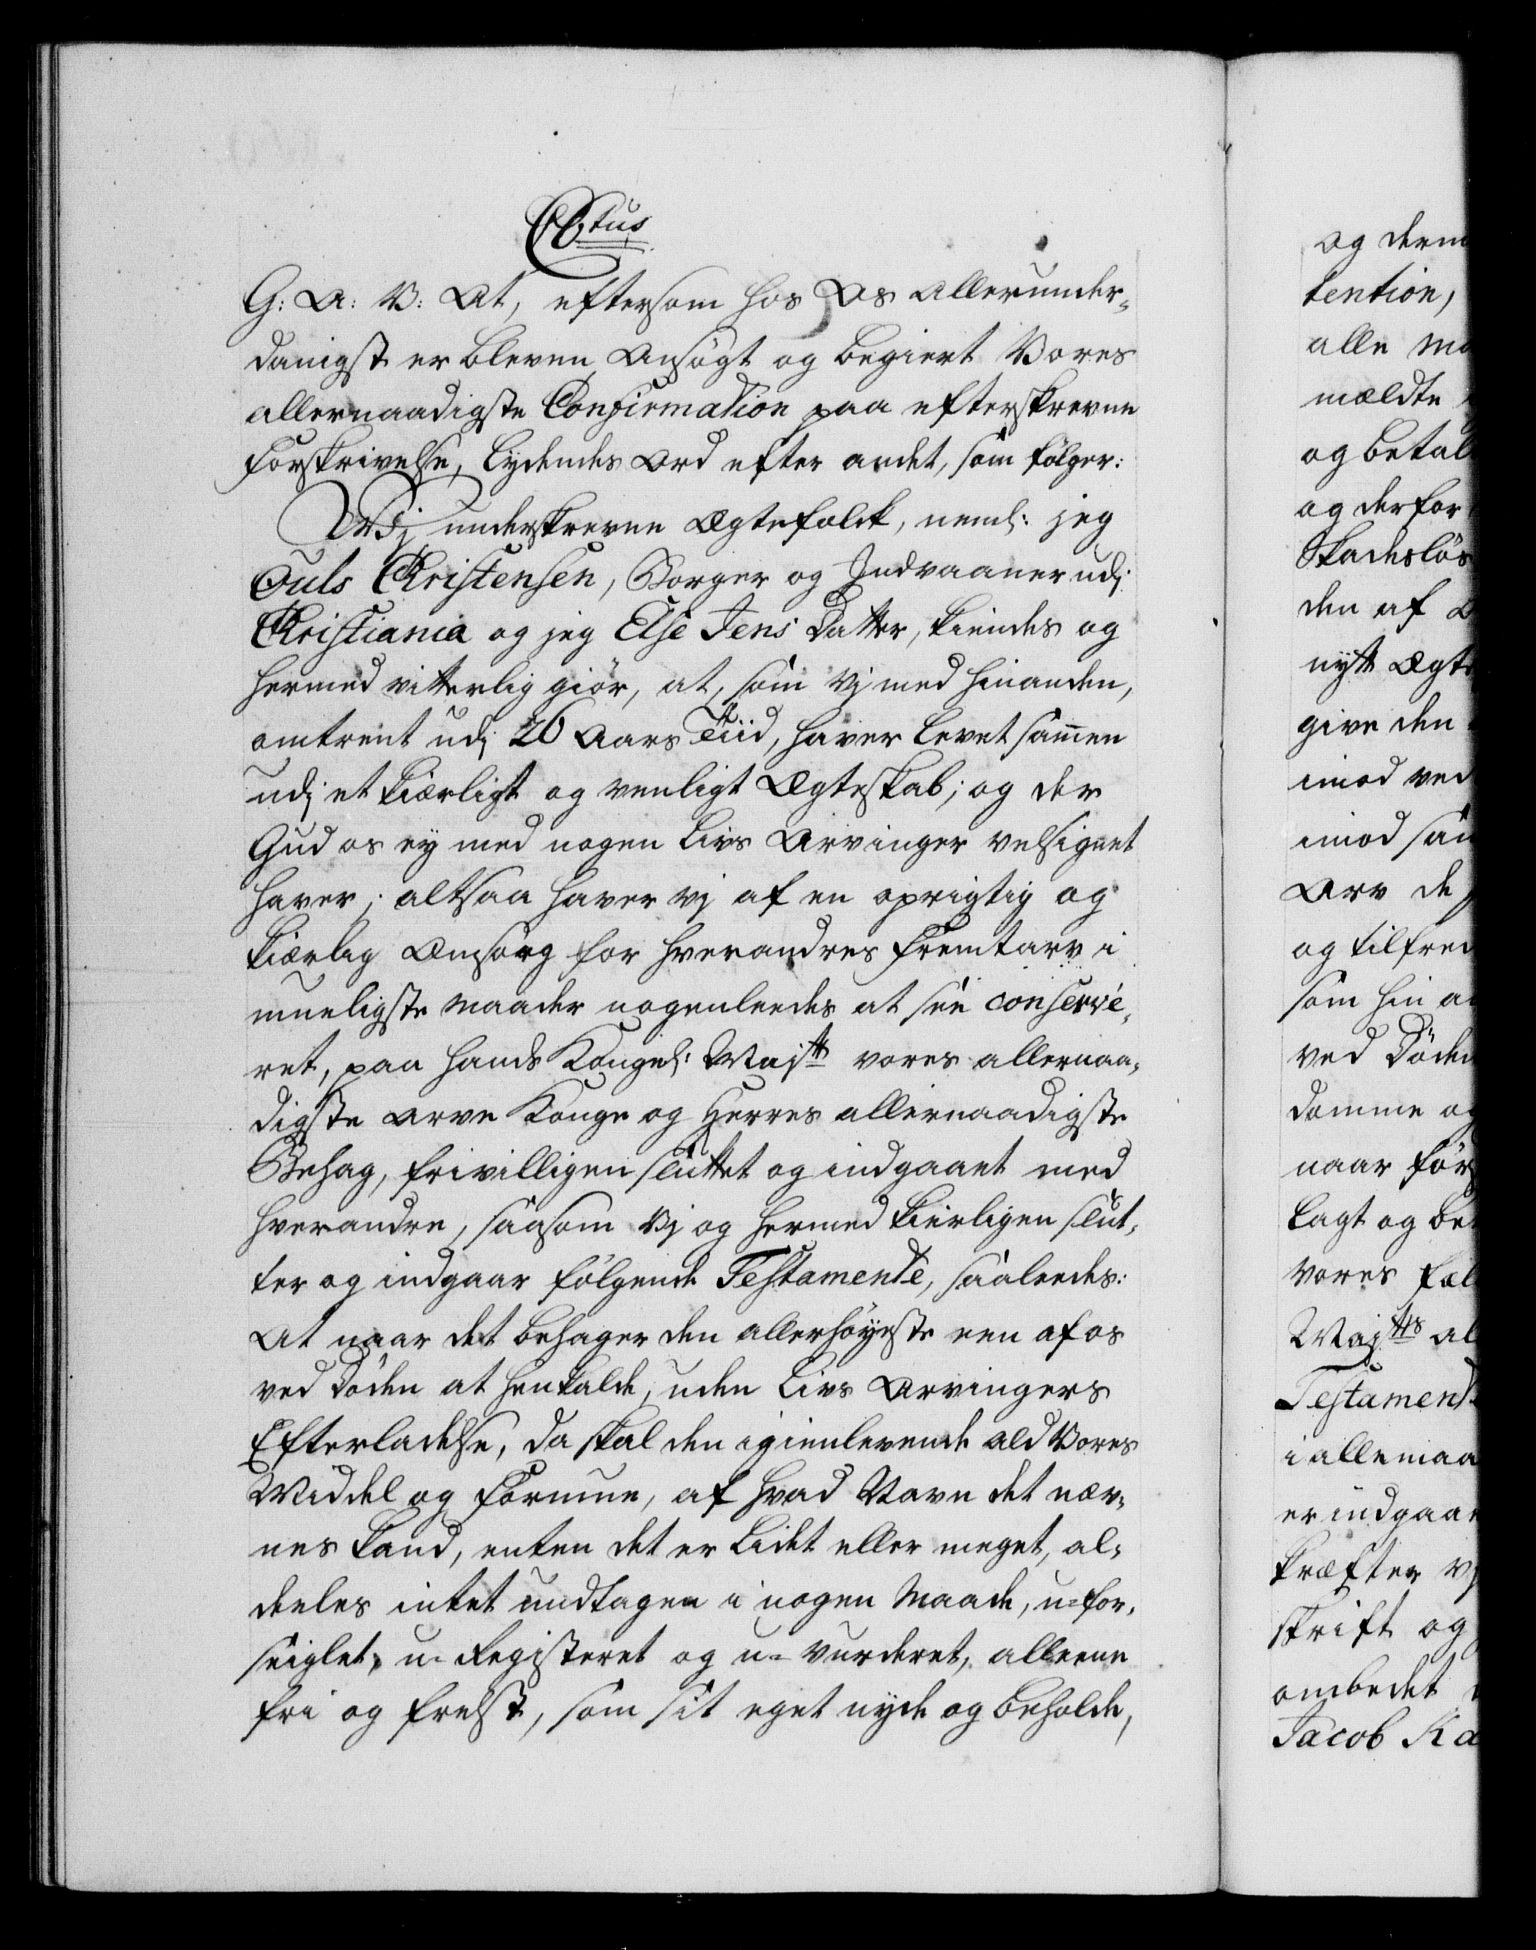 Ctus
G: A: V: At, eftersom hos Os allerunder-
danigst er bleven Ansøgt og begiert Vores
allernaadigste Confirmation paa efterskrevne
Forskrivelse, lydendes Ord efter andet, som følger:
Vj underskrevne Ægtefolck, neml: jeg
Ouls Christensen, Borger og Indvaaner udj
Christiania og jeg Else Jens Datter, kiendes og
hermed vitterlig giør, at, som vj med hinanden,
omtrent udj 26 Aars Tiid, haver levet sam̄en
udj et kierligt og venligt Ægteskab; og der
Gud os ey med nogen Livs Arvinger velsignet
haver; altsaa haver vj af en oprigtig og
kierlig Omsorg for hverandres Fremtarv i
mueligste Maader nogenleedes at see conserve-
ret, paa Hands Kongel: Majtt vores allernaa-
digste Arve Konge og Herres allernaadigste
Behag, frivilligen sluttet og indgaaet med
hverandre, saasom Vj og hermed kierligen slut-
ter og indgaar følgende Testamente, saaleedes:
At naar det behager den allerhøyeste een af os
ved Døden at henkalde, uden Livs Arvingers
Efterladelse, da skal den igienlevende ald Vores
Middel og Formue, af hvad Navn det næv-
nes kand, enten det er Lidet eller meget, al-
deeles intet undtagen i nogen Maade, u-for-
seiglet, u-Registeret og u-vurderet, alleene
fri og frelst, som sit eget nyde og beholde,
og derm
tention,
alle Ma
mældte
og betal
og derfor
Skadesløs
den af
nytt Ægt
give den
imod ved
imod sam
Arv de
og tilfred
som hin a
ved Døden
domme og
naar før
lagt og be
vores fæl
Majtts al
Testament
i alle maa
er indgaae
kræfter vj
skrift og
ombedet
Jacob Ka